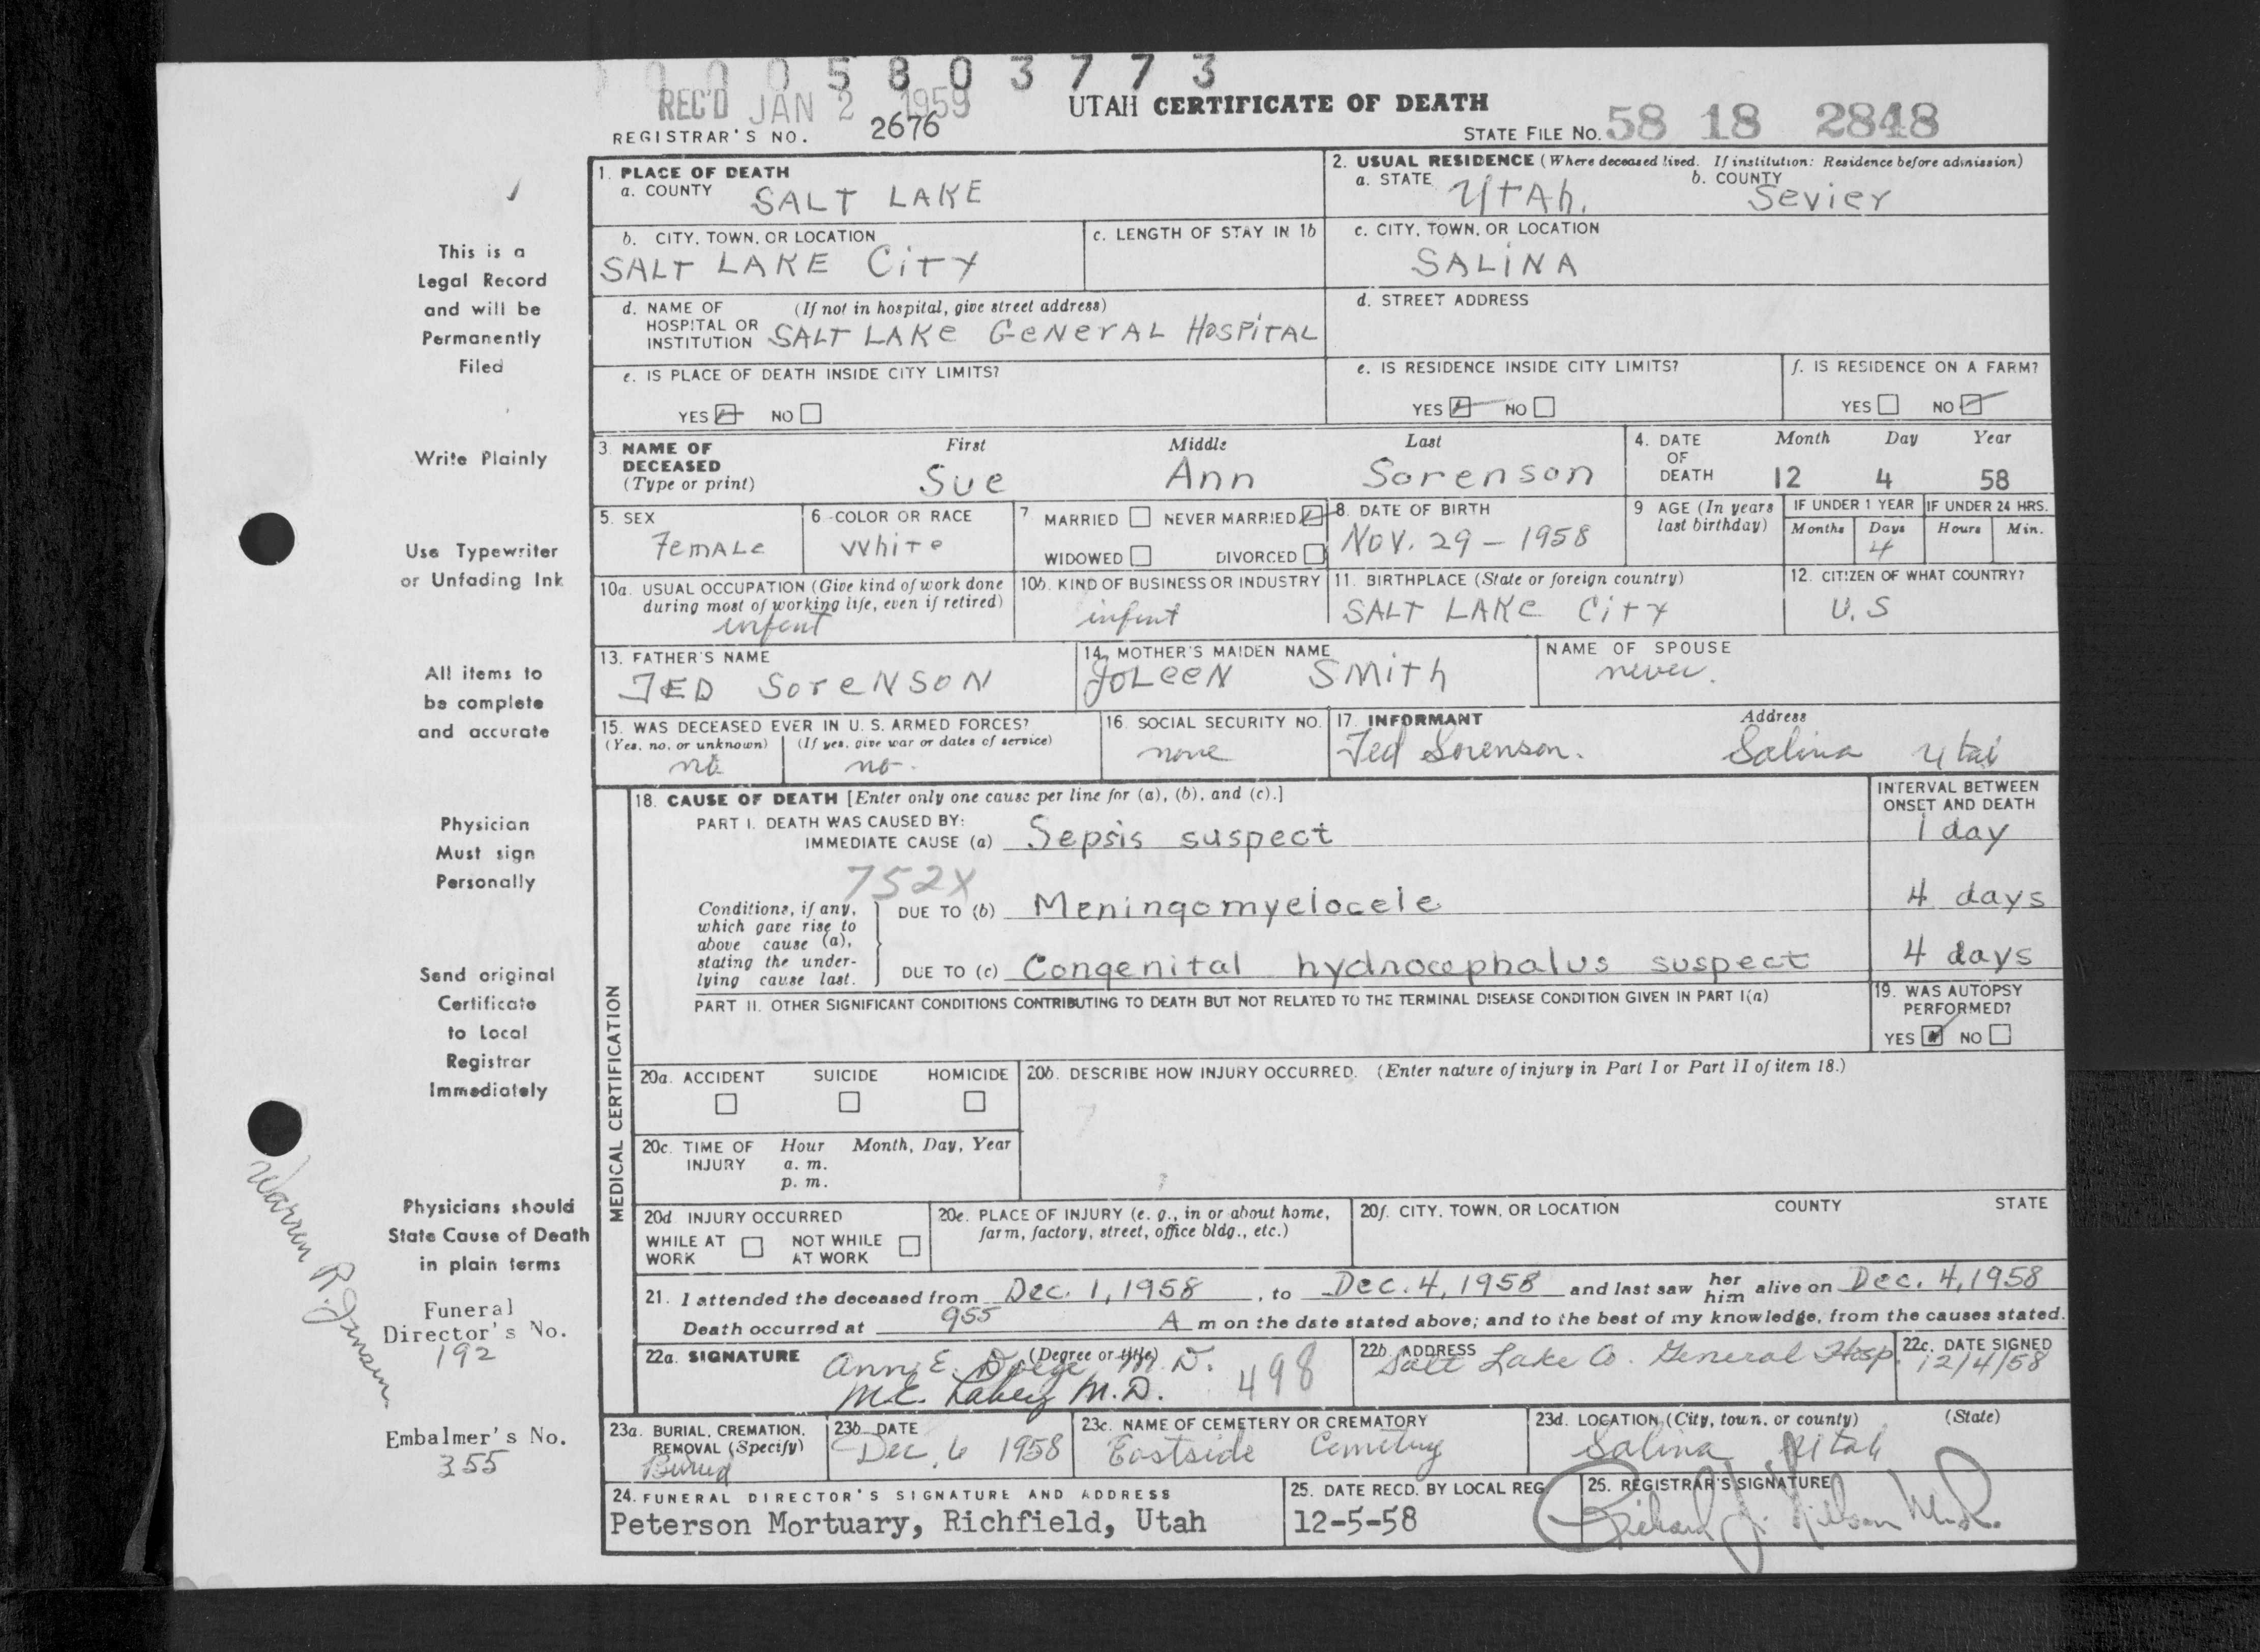 0005803773
REC'D JAN 2 1959
UTAH CERTIFICATE OF DEATH
REGISTRAR'S NO. 2676
STATE FILE NO. 58 18 2848
This is a
Legal Record
and will be
Permanently
Filed
Write Plainly
Use Typewriter
or Unfading Ink
All items to
be complete
and accurate
Physician
Must sign
Personally
Send original
Certificate
to Local
Registrar
Immediately
Physicians should
State Cause of Death
in plain terms
Funeral
Director's No.
192
Embalmer's No.
355
Warren R. Jensen
1. PLACE OF DEATH
a. COUNTY SALT LAKE
2. USUAL RESIDENCE (Where deceased lived. If institution: Residence before admission)
a. STATE UTAh. b. COUNTY Sevier
b. CITY, TOWN, OR LOCATION
SALT LAKE CiTY
c. LENGTH OF STAY IN 1b
c. CITY, TOWN, OR LOCATION
SALiNA
d. NAME OF HOSPITAL OR INSTITUTION (If not in hospital, give street address)
SALT LAKe GeNerAL HOSPiTAL
d. STREET ADDRESS
e. IS PLACE OF DEATH INSIDE CITY LIMITS?
YES NO
e. IS RESIDENCE INSIDE CITY LIMITS?
YES NO
f. IS RESIDENCE ON A FARM?
YES NO
3. NAME OF DECEASED (Type or print)
First Middle Last
Sue Ann Sorenson
4. DATE OF DEATH
Month Day Year
12 4 58
5. SEX
FemALe
6 COLOR OR RACE
White
7 MARRIED NEVER MARRIED
WIDOWED DIVORCED
8. DATE OF BIRTH
NOV. 29 - 1958
9 AGE (In years last birthday)
IF UNDER 1 YEAR
Months Days
4
IF UNDER 24 HRS.
Hours Min.
10a. USUAL OCCUPATION (Give kind of work done during most of working life, even if retired)
infant
10b. KIND OF BUSINESS OR INDUSTRY
infant
11. BIRTHPLACE (State or foreign country)
SALT LAKe CiTY
12. CITIZEN OF WHAT COUNTRY?
U.S
13. FATHER'S NAME
TED SoreNSON
14. MOTHER'S MAIDEN NAME
JoLeeN SMiTh
NAME OF SPOUSE
never.
15. WAS DECEASED EVER IN U. S. ARMED FORCES?
(Yes, no, or unknown) (If yes, give war or dates of service)
no no.
16. SOCIAL SECURITY NO.
none
17. INFORMANT Address
Ted Sorenson. Salina Utah
MEDICAL CERTIFICATION
18. CAUSE OF DEATH [Enter only one cause per line for (a), (b), and (c).]
INTERVAL BETWEEN ONSET AND DEATH
PART I. DEATH WAS CAUSED BY:
IMMEDIATE CAUSE (a) Sepsis suspect 1 day
752X
Conditions, if any, which gave rise to above cause (a), stating the underlying cause last.
DUE TO (b) Meningomyelocele 4 days
DUE TO (c) Congenital hydrocephalus suspect 4 days
PART II. OTHER SIGNIFICANT CONDITIONS CONTRIBUTING TO DEATH BUT NOT RELATED TO THE TERMINAL DISEASE CONDITION GIVEN IN PART I(a)
19. WAS AUTOPSY PERFORMED?
YES NO
20a. ACCIDENT SUICIDE HOMICIDE
20b. DESCRIBE HOW INJURY OCCURRED. (Enter nature of injury in Part I or Part II of item 18.)
20c. TIME OF INJURY Hour Month, Day, Year
a. m.
p. m.
20d INJURY OCCURRED
WHILE AT WORK NOT WHILE AT WORK
20e. PLACE OF INJURY (e. g., in or about home, farm, factory, street, office bldg., etc.)
20f. CITY, TOWN, OR LOCATION COUNTY STATE
21. I attended the deceased from Dec. 1, 1958, to Dec. 4, 1958 and last saw her him alive on Dec. 4, 1958
Death occurred at 955 A m on the date stated above; and to the best of my knowledge, from the causes stated.
22a. SIGNATURE (Degree or title)
Ann E. M.D.
M.E. Lahey M.D. 498
22b. ADDRESS
Salt Lake Co. General Hosp.
22c. DATE SIGNED
12/4/58
23a. BURIAL, CREMATION, REMOVAL (Specify)
Buried
23b. DATE
Dec, 6 1958
23c. NAME OF CEMETERY OR CREMATORY
Eastside Cemetery
23d. LOCATION (City, town, or county) (State)
Salina Utah
24. FUNERAL DIRECTOR'S SIGNATURE AND ADDRESS
Peterson Mortuary, Richfield, Utah
25. DATE RECD. BY LOCAL REG.
12-5-58
25. REGISTRAR'S SIGNATURE
Richard J. Nilson M.D.